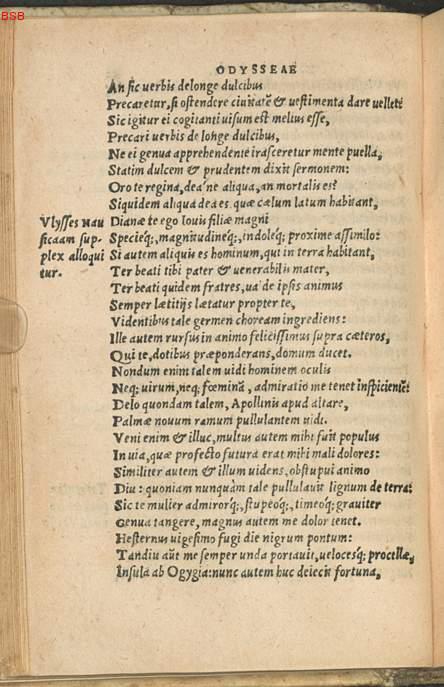 BSB
ODYSSEAE
An sic uerbis delonge dulcibus
Precaretur, si ostendere ciuitatē & uestimenta dare uelletː
Sic igitur ei cogitanti uisum est melius esse,
Precari uerbis de longe dulcibus,
Ne ei genua apprehendente irasceretur mente puella,
Statim dulcem & prudentem dixit sermonem:
Oro te regina, dea'ne aliqua, an mortalis es?
Siquidem aliqua dea es quæ cælum latum habitant,
Vlysses Nau
sicaam sup-
plex alloqui
tur.
Dianæ te ego Iouis filiæ magni
Specieq;, magnitudineq;, indoleq; proxime assimilo:
Si autem aliquis es hominum, qui in terra habitant,
Ter beati tibi pater & uenerabilis mater,
Ter beati quidem fratres, ualde ipsis animus
Semper lætitijs lætatur propter te,
Videntibus tale germen choream ingrediens:
Ille autem rursus in animo felicissimus supra cæteros,
Qui te, dotibus præponderans, domum ducet.
Nondum enim talem uidi hominem oculis
Neq; uirum, neq; fœminā, admiratio me tenet inspicientē:
Delo quondam talem, Apollinis apud altare,
Palmæ nouum ramum pullulantem uidi.
Veni enim & illuc, multus autem mihi fuit populus
In uia, quæ profecto futura erat mihi mali dolores:
Similiter autem & illum uidens, obstupui animo
Diu: quoniam nunquàm tale pullulauit lignum de terra:
Sic te mulier admirorq;, stupeoq;, timeoq; grauiter
Genua tangere, magnus autem me dolor tenet.
Hesternus uigesimo fugi die nigrum pontum:
Tandiu aūt me semper unda portauit, uelocesq; procellæ,
Insula ab Ogygia: nunc autem huc deiecit fortuna,